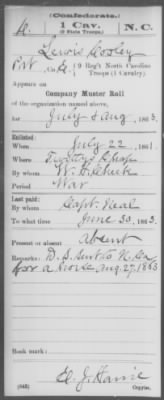 (Confederate.)
1 Cav. N. C.
(9 State Troops.)
Lewis Cooley
Pvt, Co. K, 9 Reg't North Carolina
Troops (1 Cavalry).
Appears on
Company Muster Roll
of the organization named above,
for July & Aug, 1863.
Enlisted:
When July 22, 1861.
Where
By whom W. H. Cheek
Period War
Last paid:
By whom Capt. Neal
To what time June 30, 1863.
Present or absent Absent
Remarks: D. S. Sent to N. Ca
for a horse Aug. 27, 1863
Book mark:
(642) Copyist.